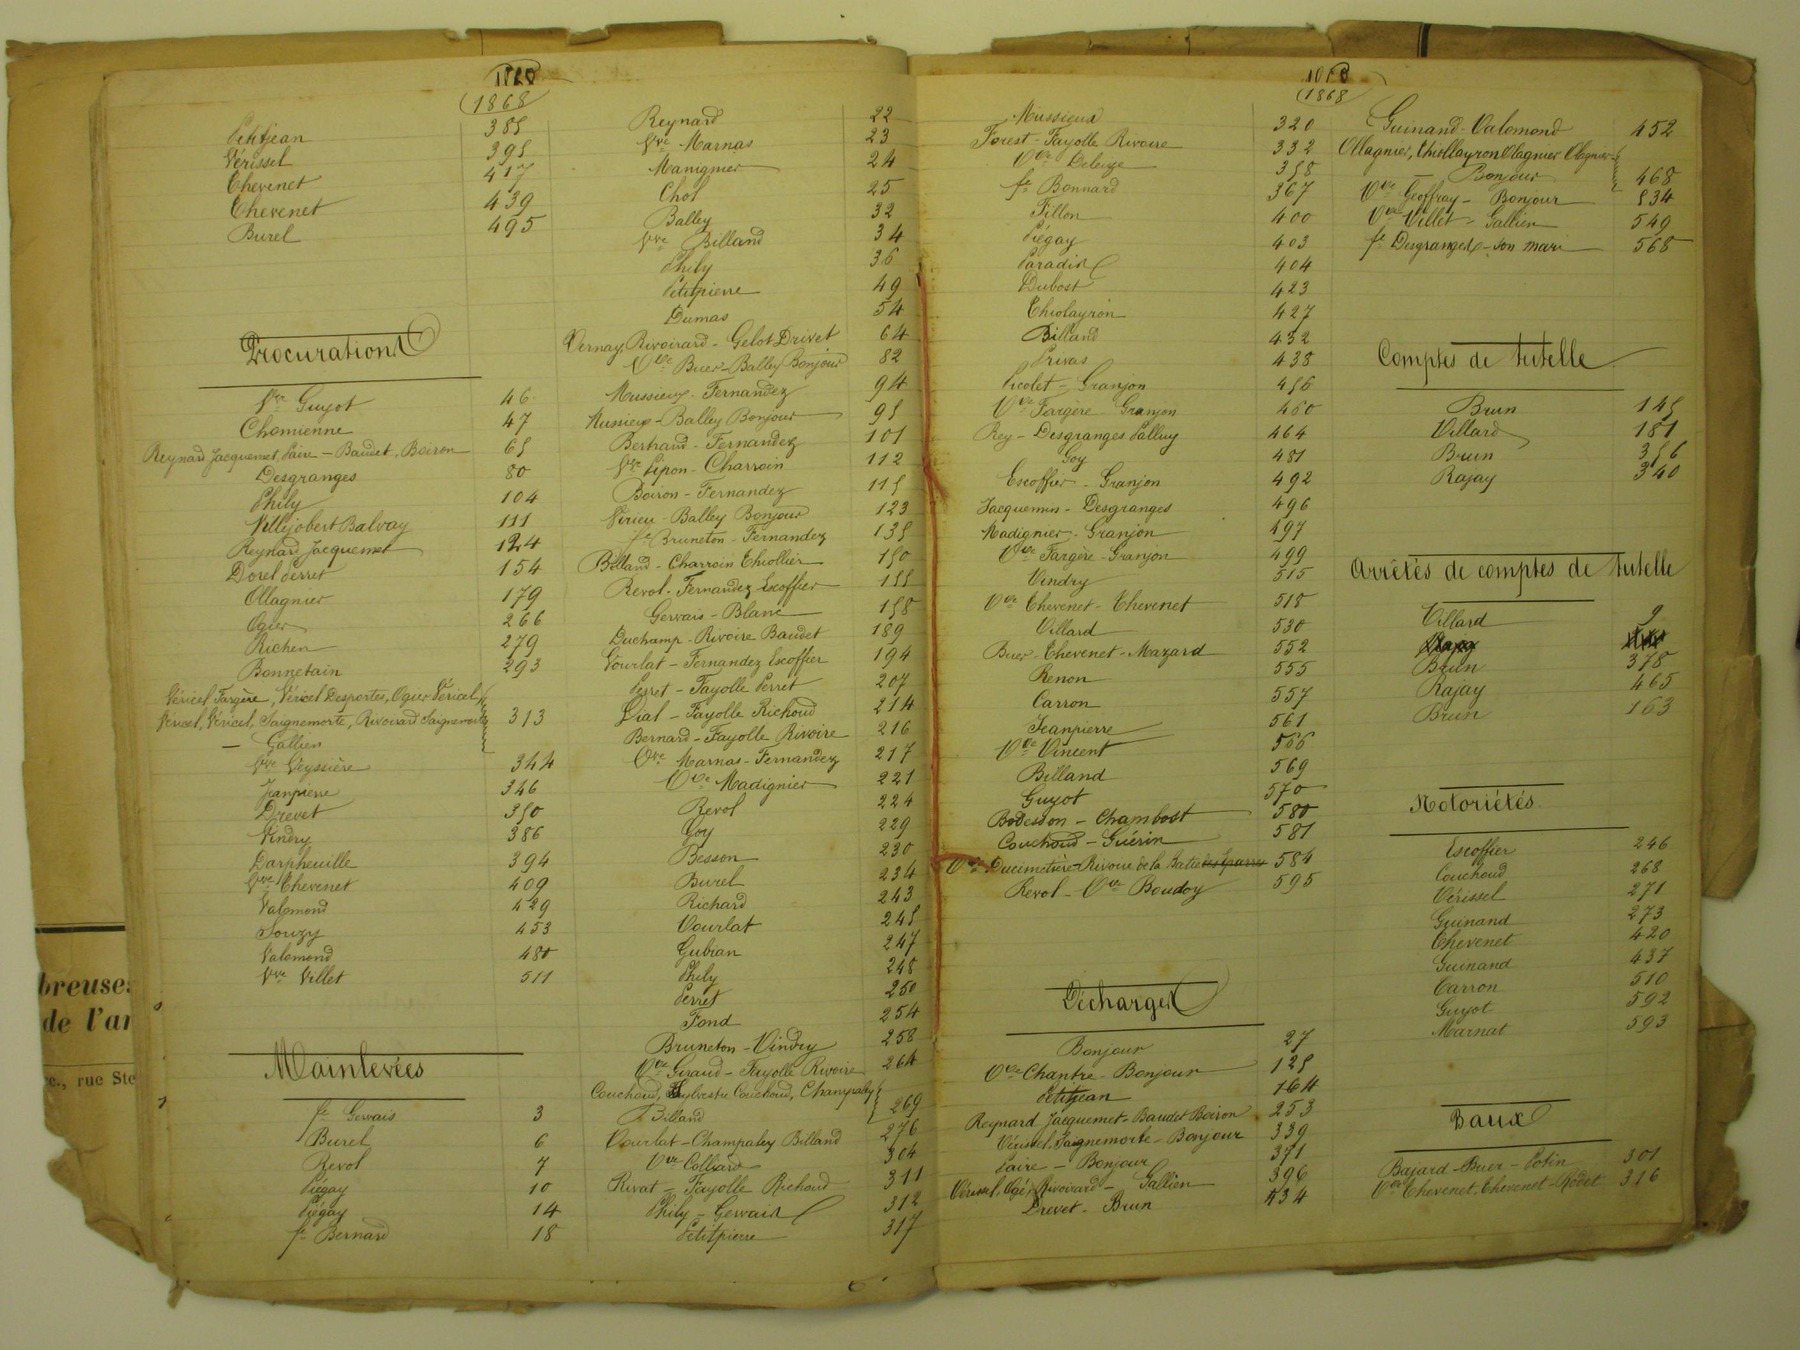 1868
Petitjean 385
Vérissel 395
Chevenet 417
Chevenet 439
Burel 495
Procurations
Vve Guyot 46
Chomienne 47
Reynard Jacquemet, Paire - Baudet, Boiron 65
Desgranges 80
Phily 104
Villejobert Balvay 111
Reynard Jacquemet 124
Dorel Perret 154
Ollagnier 179
Ogier 266
Richen 279
Bonnetain 293
Véricel Fargère, Véricel Desportes, Ogier Véricel
Véricel, Véricel, Saignemorte, Rivoirard Saignemorte 313
— Gallien
Vve Veyssière 344
Jeanpierre 346
Drevet 350
Vindry 386
Darpheuille 394
Vve Chevenet 409
Valomond 429
Souzy 453
Valomond 480
Vve Villet 511
Mainlevées
fe Gervais 3
Burel 6
Revol 7
Piégay 10
Piégay 14
fe Bernard 18
Reynard 22
Vve Marnas 23
Manignier 24
Chol 25
Balley 32
Vve Billand 34
Phily 36
Petitpierre 49
Dumas 54
Vernay, Rivoirard - Gelot Drivet 64
Vve Buer - Balley Bonjour 82
Mussieux - Fernandez 94
Mussieux - Balley Bonjour 95
Bertrand - Fernandez 101
Vve Pipon - Charroin 112
Boiron - Fernandez 115
Vérieu - Balley Bonjour 123
fe Bruneton - Fernandez 135
Billand - Charroin Thiollier 150
Revol - Fernandez Escoffier 155
Gervais - Blanc 158
Duchamp - Rivoire Baudet 189
Vourlat - Fernandez Escoffier 194
Perret - Fayolle Perret 207
Lial - Fayolle Richoud 214
Bernard - Fayolle Rivoire 216
Vve Marnas - Fernandez 217
Vve Madignier 221
Revol 224
Goy 229
Besson 230
Burel 234
Richard 243
Vourlat 245
Gubian 247
Phily 248
Perret 250
Fond 254
Bruneton - Vindry 258
Vve Giraud - Fayolle Rivoire 264
Couchoud, Sylvestre Couchoud, Champaley
Billand 269
Vourlat - Champaley Billand 276
Vve Colliard 304
Rivat - Fayolle Richoud 311
Phily - Gervais 312
Petitpierre 317
1868
Mussieux 320
Forest - Fayolle Rivoire 332
Vve Deleuze 358
fe Bonnard 367
Fillon 400
Piégay 403
Paradis 404
Dubost 423
Thiolayron 427
Billand 432
Privas 438
Picolet - Granjon 456
Vve Fargère Granjon 460
Rey - Desgranges Palluy 464
Goy 481
Escoffier - Granjon 492
Jacquemin - Desgranges 496
Madignier - Granjon 497
Vve Fargère - Granjon 499
Vindry 515
Vve Chevenet - Chevenet 518
Villard 530
Buer - Chevenet - Mazard 552
Renon 555
Carron 557
Jeanpierre 561
Vve Vincent 566
Billand 569
Guyot 570
Bodesson - Chambost 580
Couchoud - Guérin 581
Vve Ducimetière - Rivoire de la Batie 584
Revol - Vve Boudoy 595
Décharges
Bonjour 27
Vve Chantre - Bonjour 125
Petitjean 164
Reynard Jacquemet - Baudet Boiron 253
Vérissel, Saignemorte - Bonjour 339
Paire - Bonjour 371
Rivoirard - Gallien 396
Drevet - Brun 434
Guinand - Valomond 452
Ollagnier, Thiollayron Olagnier Olagnier
— Bonjour 468
Vve Geoffray - Bonjour 534
Vve Villet - Gallien 549
fe Desgranges - son mari 568
Comptes de tutelle
Brun 145
Villard 181
Brun 356
Rajay 340
Arrêtés de comptes de tutelle
Villard 9
Brun 378
Rajay 465
Brun 163
Notoriétés
Escoffier 246
Couchoud 268
Vérissel 271
Guinand 273
Chevenet 420
Guinand 437
Carron 510
Guyot 592
Marnat 593
Baux
Bajard - Buer - Potin 301
Vve Chevenet, Chevenet - Rodet 316
breuses
de l'ar
rue Ste